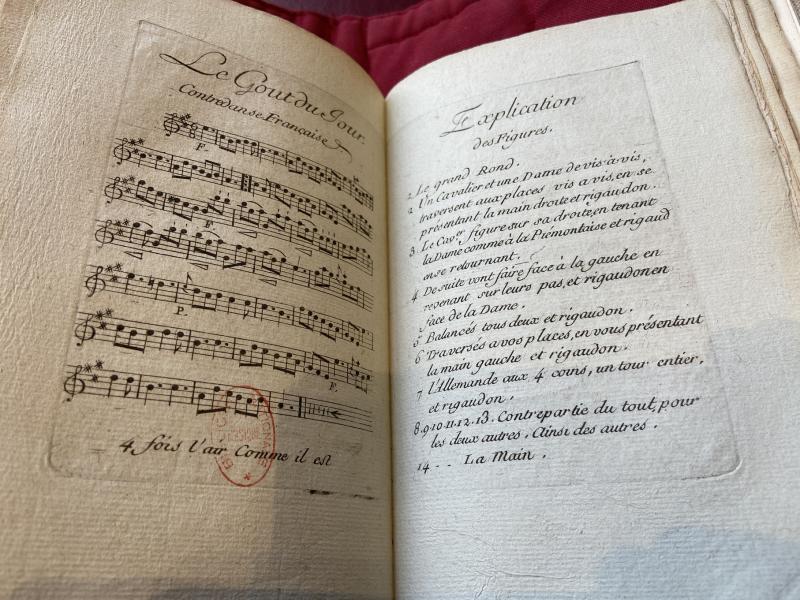 Le Gout du Jour.
Contredanse Française
F.
F.
P.
F.
4 fois l'air Comme il est
Explication
des Figures.
1 Le grand Rond.
2 Un Cavalier et une Dame de vis à vis,
traversent aux places vis a vis, en se
présentant la main droite et rigaudon.
3 Le Cav.er figure sur sa droite, en tenant
la Dame comme à la Piémontaise et rigaud
en se retournant.
4 De suite vont faire face à la gauche en
revenant sur leurs pas, et rigaudon en
face de la Dame.
5 Balancés tous deux et rigaudon.
6 Traversés a vos places, en vous présentant
la main gauche et rigaudon.
7 l'Allemande aux 4 coins, un tour entier,
et rigaudon.
8.9.10.11.12.13. Contrepartie du tout, pour
les deux autres. Ainsi des autres.
14 - - La Main.